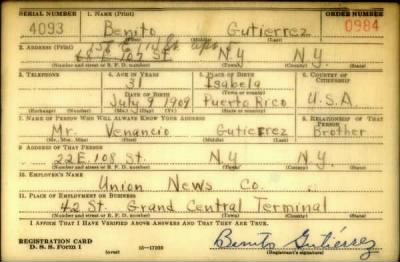 SERIAL NUMBER 1. NAME (Print) ORDER NUMBER
4093 Benito Gutierrez 0984
(First) (Middle) (Last)
2. ADDRESS (Print)
156 E. St. N.Y. N.Y.
E. 107 St.
(Number and street or R. F. D. number) (Town) (County) (State)
3. TELEPHONE 4. AGE IN YEARS 5. PLACE OF BIRTH 6. COUNTRY OF CITIZENSHIP
31 Isabela
DATE OF BIRTH (Town or county)
July 9 1909 Puerto Rico U.S.A
(Exchange) (Number) (Mo.) (Day) (Yr.) (State or country)
7. NAME OF PERSON WHO WILL ALWAYS KNOW YOUR ADDRESS 8. RELATIONSHIP OF THAT PERSON
Mr. Venancio Gutierrez Brother
(Mr., Mrs., Miss) (First) (Middle) (Last)
9. ADDRESS OF THAT PERSON
22 E. 108 St. N.Y. N.Y.
(Number and street or R. F. D. number) (Town) (County) (State)
10. EMPLOYER'S NAME
Union News Co.
11. PLACE OF EMPLOYMENT OR BUSINESS
42 St. Grand Central Terminal
(Number and street or R. F. D. number) (Town) (County) (State)
I AFFIRM THAT I HAVE VERIFIED ABOVE ANSWERS AND THAT THEY ARE TRUE.
REGISTRATION CARD
D. S. S. FORM 1 (over) 16—17105 Benito Gutiérrez
(Registrant's signature)